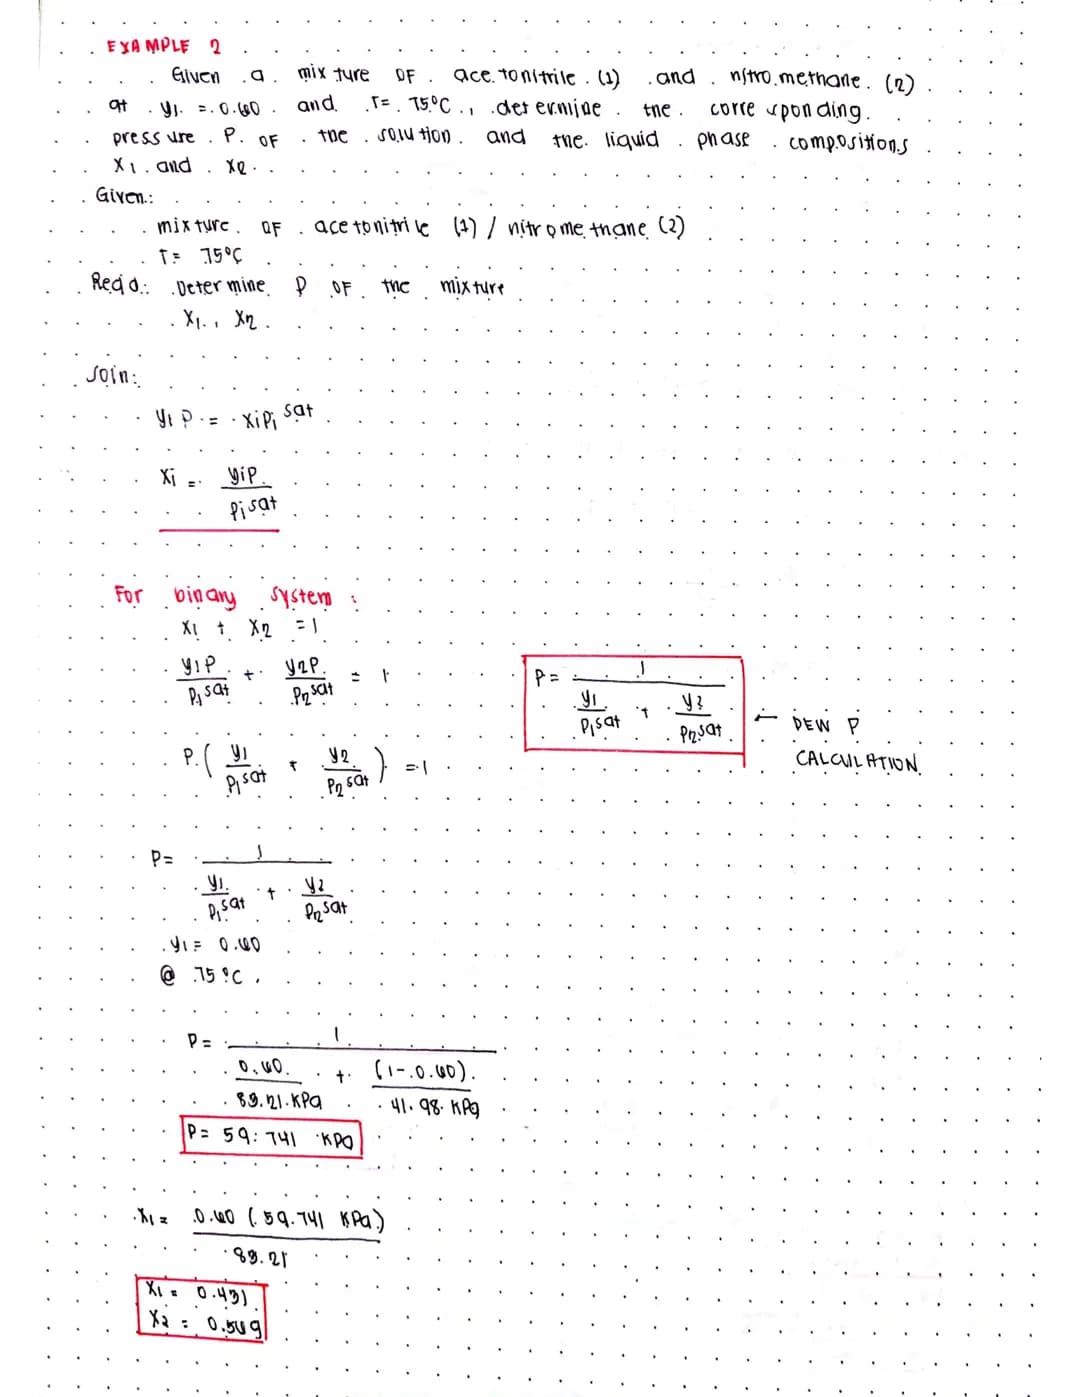 EXAMPLE 2
Given a mixture OF acetonitrile (1) and nitromethane (2)
at y1 = 0.60 and T= 75°C, determine the corresponding
pressure P OF the solution and the liquid phase compositions
x1 and x2.
Given:
mixture OF acetonitrile (1) / nitromethane (2)
T= 75°C
Req'd.: Determine P OF the mixture
X1, X2
Soln:
y1 P = xiPi sat
xi = yiP
Pi sat
For binary system :
X1 + X2 = 1
y1P + y2P = 1
P1 sat P2 sat
P ( y1 + y2 ) = 1
P1 sat P2 sat
P= 1
y1 + y2
P1 sat P2 sat
← DEW P
CALCULATION
P= 1
y1 + y2
P1 sat P2 sat
y1 = 0.60
@ 75°C,
P = 1
0.60 + (1-0.60)
83.21 KPa 41.98 KPa
P= 59.741 KPa
X1 = 0.60 (59.741 KPa)
83.21
X1 = 0.431
X2 = 0.569